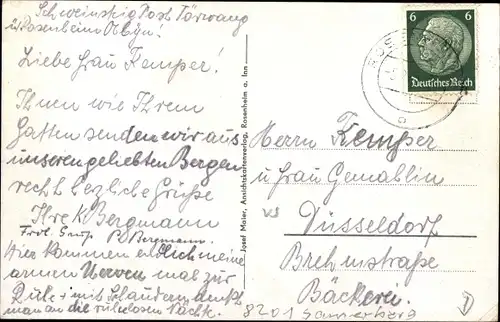 Schweinsteig Post Törwang
b/Rosenheim Obbyn!
Liebe Frau Kemper!
Ihnen wie Ihrem
Gatten senden wir aus
unseren geliebten Bergen
recht herzliche Grüße
Ihre K Bergmann
Frdl. Gruß P. Bergmann.
Hier kommen endlich meine
armen Nerven mal zur
Ruhe + mit Schaudern denkt
man an die ruhelosen Nächte.
Josef Maier, Ansichtskartenverlag, Rosenheim a. Inn
6 6
Deutsches Reich
ROS
Herrn Kemper
u Frau Gemahlin
Düsseldorf
Brehmstraße
Bäckerei.
8201 Samerberg